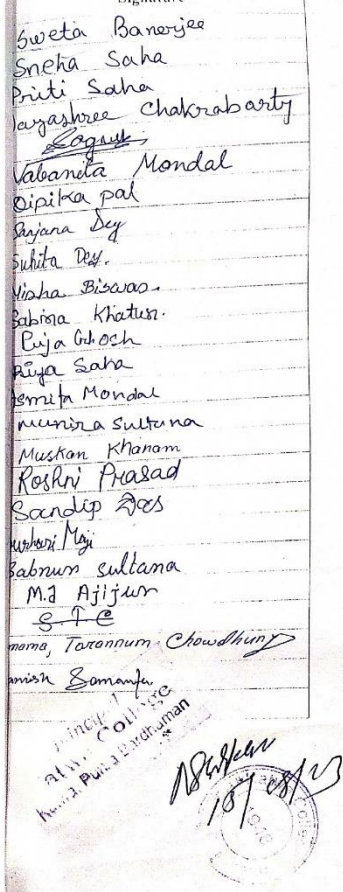 Signature
Sweta Banerjee
Sneha Saha
Priti Saha
Jayashree Chakrabarty
Nabanita Mondal
Dipika pal
Sanjana Dey
Suhita Dey.
Misha Biswas.
Sabina Khatun.
Puja Ghosh
Riya Saha
Asmita Mondal
Munira Sultana
Muskan Khanam
Roshni Prasad
Sandip Das
Maji
Sabnum Sultana
M.d Ajijur
Tarannum Chowdhury
Samanta
Principal
College
Kalna, Purba Bardhaman
18/08/23
College
1943